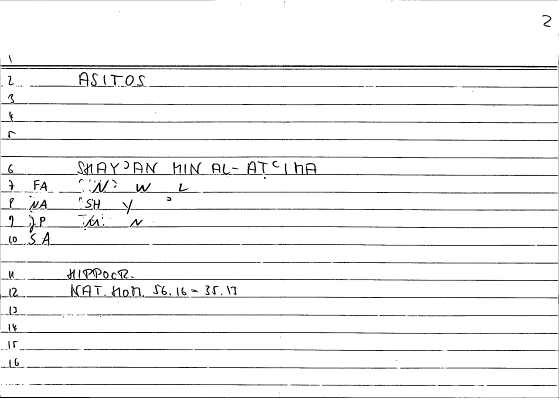 2
1
2 ASITOS
3
4
5
6 SHAYʾAN MIN AL-AṬʿIMA
7 FA N W L
8 NA SH Y ʾ
9 JP M N
10 SA
11 HIPPOCR.
12 NAT. HOM. 56.16 = 35.13
13
14
15
16